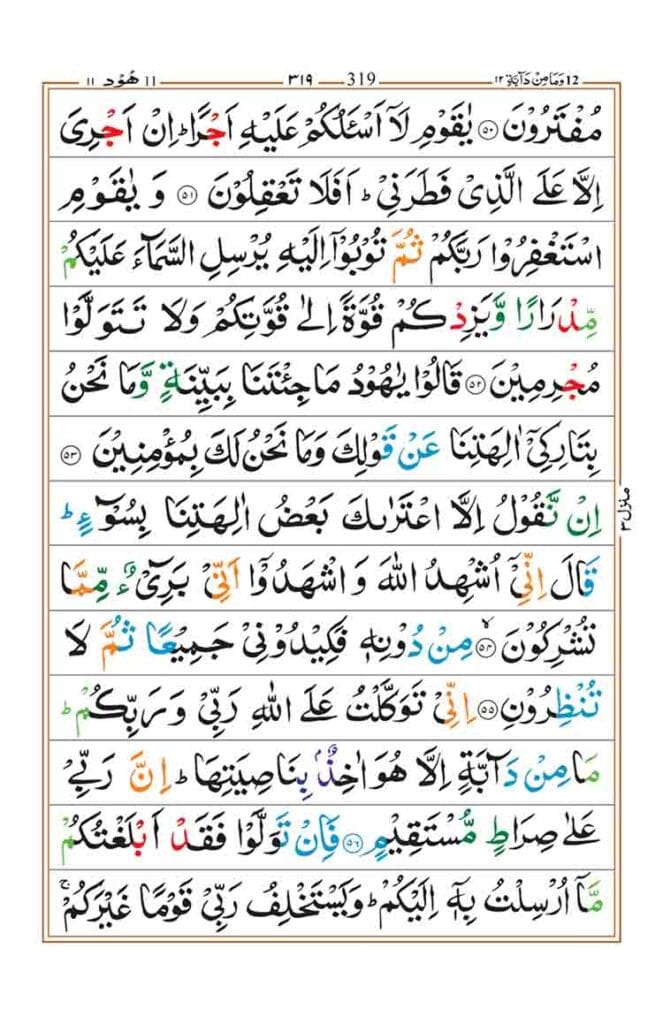 12 وَمَا مِنْ دَآبَّةٍ ١٢ 319 ٣١٩ 11 هُوْد ١١
مُفْتَرُوْنَ ۝٥٠ يٰقَوْمِ لَاۤ اَسْـَٔلُكُمْ عَلَيْهِ اَجْرًا ؕ اِنْ اَجْرِىَ
اِلَّا عَلَى الَّذِىْ فَطَرَنِىْ ؕ اَفَلَا تَعْقِلُوْنَ ۝٥١ وَ يٰقَوْمِ
اسْتَغْفِرُوْا رَبَّكُمْ ثُمَّ تُوْبُوْۤا اِلَيْهِ يُرْسِلِ السَّمَآءَ عَلَيْكُمْ
مِّدْرَارًا وَّيَزِدْكُمْ قُوَّةً اِلٰى قُوَّتِكُمْ وَلَا تَتَوَلَّوْا
مُجْرِمِيْنَ ۝٥٢ قَالُوْا يٰهُوْدُ مَا جِئْتَنَا بِبَيِّنَةٍ وَّمَا نَحْنُ
بِتَارِكِىْۤ اٰلِهَتِنَا عَنْ قَوْلِكَ وَمَا نَحْنُ لَكَ بِمُؤْمِنِيْنَ ۝٥٣
اِنْ نَّقُوْلُ اِلَّا اعْتَرٰٮكَ بَعْضُ اٰلِهَتِنَا بِسُوْٓءٍ ؕ
قَالَ اِنِّىْۤ اُشْهِدُ اللّٰهَ وَ اشْهَدُوْۤا اَنِّىْ بَرِىْٓءٌ مِّمَّا
تُشْرِكُوْنَ ۙ‏ ۝٥٤ مِنْ دُوْنِهٖ فَكِيْدُوْنِىْ جَمِيْعًا ثُمَّ لَا
تُنْظِرُوْنِ ۝٥٥ اِنِّىْ تَوَكَّلْتُ عَلَى اللّٰهِ رَبِّىْ وَ رَبِّكُمْ ؕ
مَا مِنْ دَآبَّةٍ اِلَّا هُوَ اٰخِذٌۢ بِنَاصِيَتِهَا ؕ اِنَّ رَبِّىْ
عَلٰى صِرَاطٍ مُّسْتَقِيْمٍ ۝٥٦ فَاِنْ تَوَلَّوْا فَقَدْ اَبْلَغْتُكُمْ
مَّاۤ اُرْسِلْتُ بِهٖۤ اِلَيْكُمْ ؕ وَيَسْتَخْلِفُ رَبِّىْ قَوْمًا غَيْرَكُمْ ۚ
منزل ٣